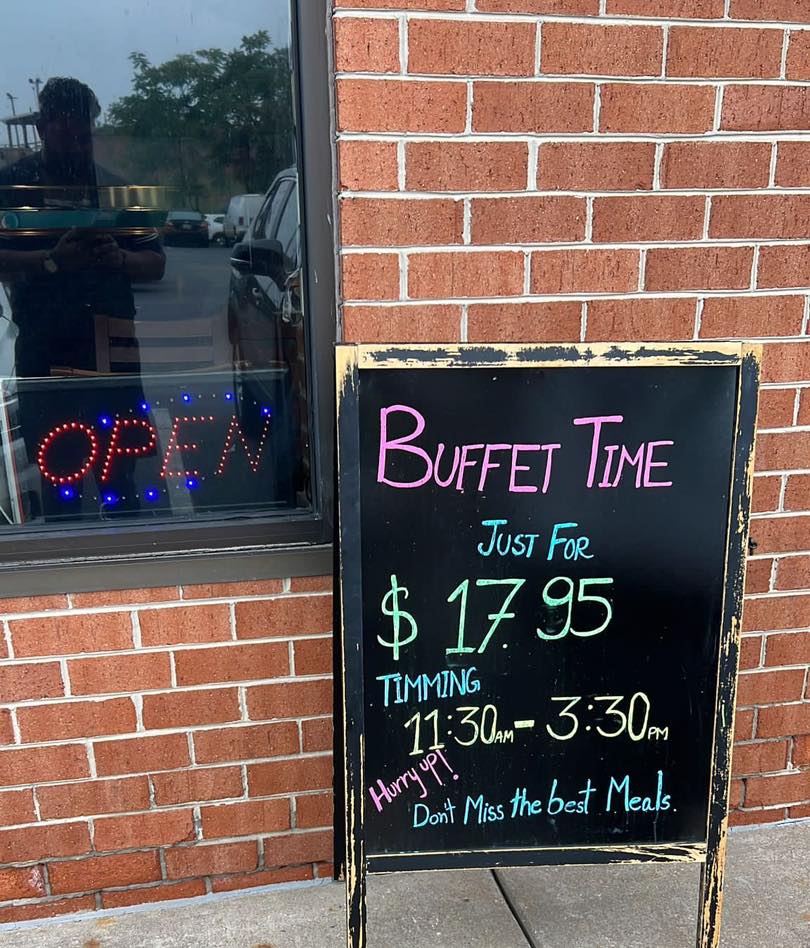 OPEN
BUFFET TIME
JUST FOR
$ 17.95
TIMMING
11:30AM - 3:30PM
Hurry up!
Don't Miss the best Meals.